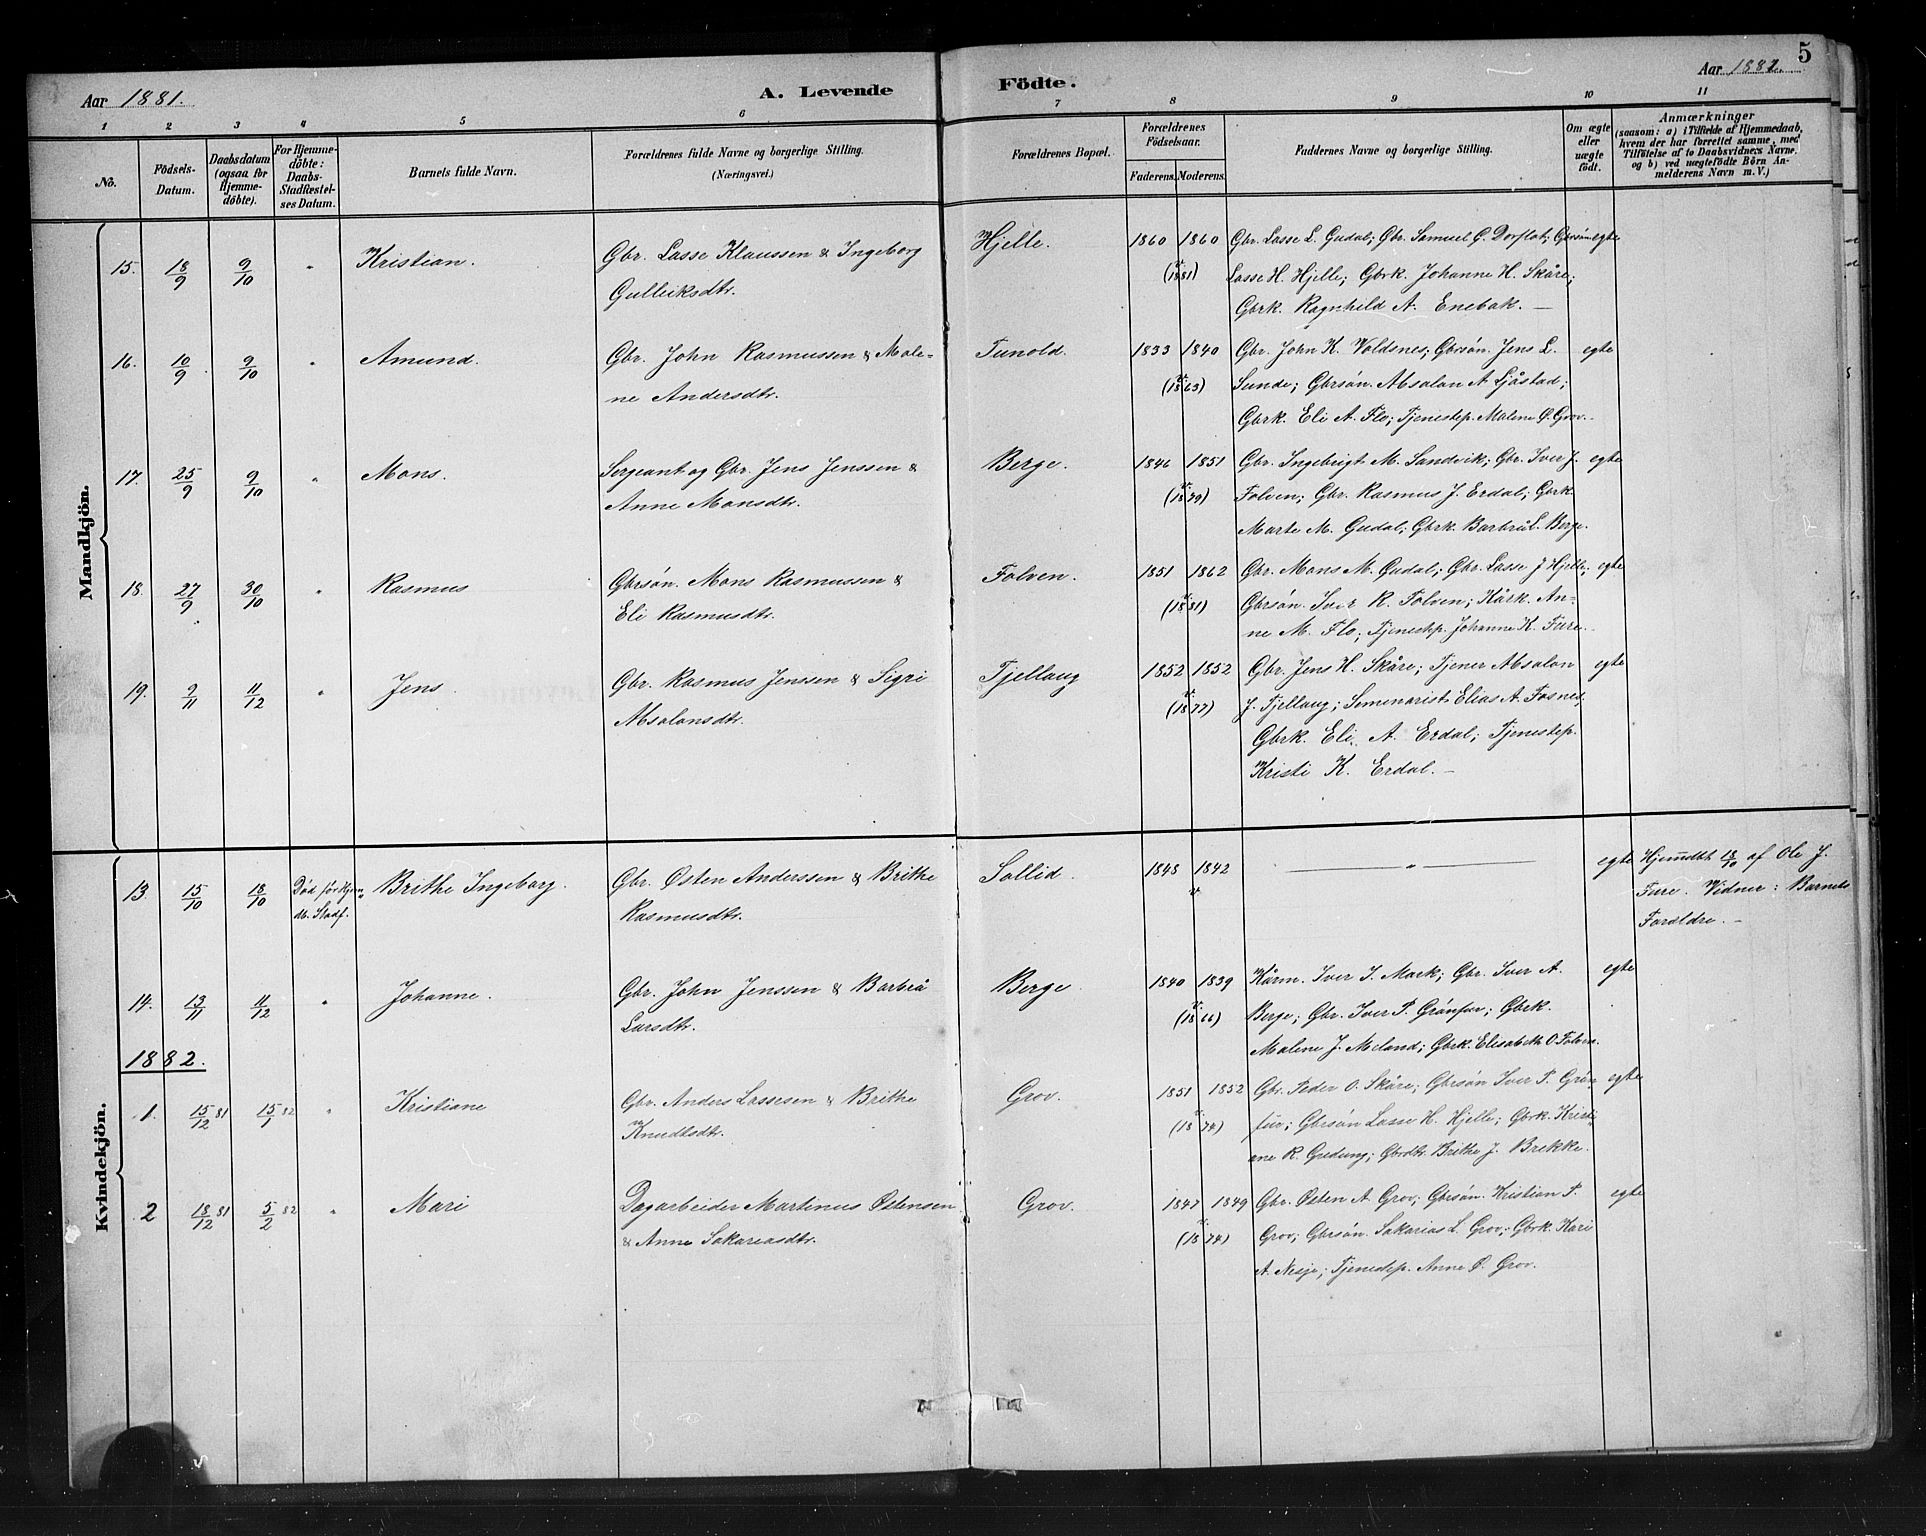 5
Aar 1881. A. Levende Födte. Aar 1882.
1 2 3 4 5 6 7 8 9 10 11
No. Födsels-Datum. Daabsdatum (ogsaa for Hjemme-döbte). For Hjemme-döbte: Daabs-Stadfæstel-ses Datum. Barnets fulde Navn. Forældrenes fulde Navne og borgerlige Stilling. (Næringsvei.) Forældrenes Bopæl. Forældrenes Födselsaar. Faderens. Moderens. Faddernes Navne og borgerlige Stilling. Om ægte eller uægte födt. Anmærkninger (saasom: a) i Tilfælde af Hjemmedaab, hvem der har forrettet samme, med Tilföielse af to Daabsvidners Navne. og b) ved uægtefödte Börn An-melderens Navn m.V.)
Mandkjön.
15. 18/9 9/10 " Kristian. Gbr. Lasse Klaussen & Ingeborg Hjelle. 1860 1860 Gbr. Lasse L. Gudal; Gbr. Samuel G. Dorflot; Gbrsøn egte
Gulleiksdtr. (1881) Lasse H. Hjelle; Gbrk. Johanne H. Skåre;
Gbrk. Ragnhild A. Enebak. —
16. 10/9 9/10 " Amund. Gbr. John Rasmussen & Male- Tunold. 1833 1840 Gbr. John K. Voldsnes; Gbrsøn. Jens L. egte
ne Andersdtr. (1863) Sunde; Gbrsøn. Absalon A. Sjåstad;
Gbrk. Eli A. Flo; Tjenestep. Malene Ø. Grov.
17. 25/9 9/10 " Mons. Sergeant og Gbr. Jens Jenssen & Berge. 1846 1851 Gbr. Ingebrigt M. Sandvik; Gbr. Iver J. egte
Anne Monsdtr. (1879) Folven; Gbr. Rasmus J. Erdal; Gbrk.
Marte M. Gudal; Gbrk. Barbrå L. Berge.
18. 27/9 30/10 " Rasmus Gbrsøn. Mons Rasmussen & Folven. 1851 1862 Gbr. Mons M. Gudal; Gbr. Lasse J. Hjelle; egte
Eli Rasmusdtr. (1881) Gbrsøn. Iver R. Folven; Kårk. An-
ne M. Flo; Tjenestep. Johanne K. Fure.
19. 9/11 11/12 " Jens. Gbr. Rasmus Jenssen & Sigri Tjellaug 1852 1852 Gbr. Jens H. Skåre; Tjener Absalon egte
Absalonsdtr. (1877) J. Tjellaug; Semenarist Elias A. Fosnes;
Gbrk. Eli A. Erdal; Tjenestep.
Kristi K. Erdal. —
Kvindekjön.
13. 15/10 18/10 Død før Hjem- Brithe Ingeborg. Gbr. Østen Anderssen & Brithe Sollid. 1848 1842 — " — egte Hjemdbt 18/10 af Ole J.
db. Stadf. Rasmusdtr. Fure. Vidner: Barnets
Forældre. —
14. 13/11 11/12 " Johanne. Gbr. John Jenssen & Barbrå Berge. 1840 1839 Kårm. Iver I. Mark; Gbr. Iver A. egte
Larsdtr. (1866) Berge; Gbr. Iver P. Grønfur; Gbrk.
Malene J. Meland; Gbrk. Elisabeth O. Folven.
1882.
1. 15/12 81 15/1 82 " Kristiane Gbr. Anders Lassesen & Brithe Grov. 1851 1852 Gbr. Peder O. Skåre; Gbrsøn Iver P. Grøn- egte
Knudtsdtr. (1874) fur; Gbrsøn Lasse H. Hjelle; Gbrk. Kristi-
ane R. Gredung; Gbrdtr. Brithe J. Brekke.
2 18/12 81 5/2 82 " Mari Dagarbeider Martinus Østensen Grov. 1847 1849 Gbr. Østen A. Grov; Gbrsøn. Kristian P. egte
& Anne Sakariasdtr. (1874) Grov; Gbrsøn. Sakarias L. Grov; Gbrk. Kari
A. Nesje; Tjenestep. Anne Ø. Grov.